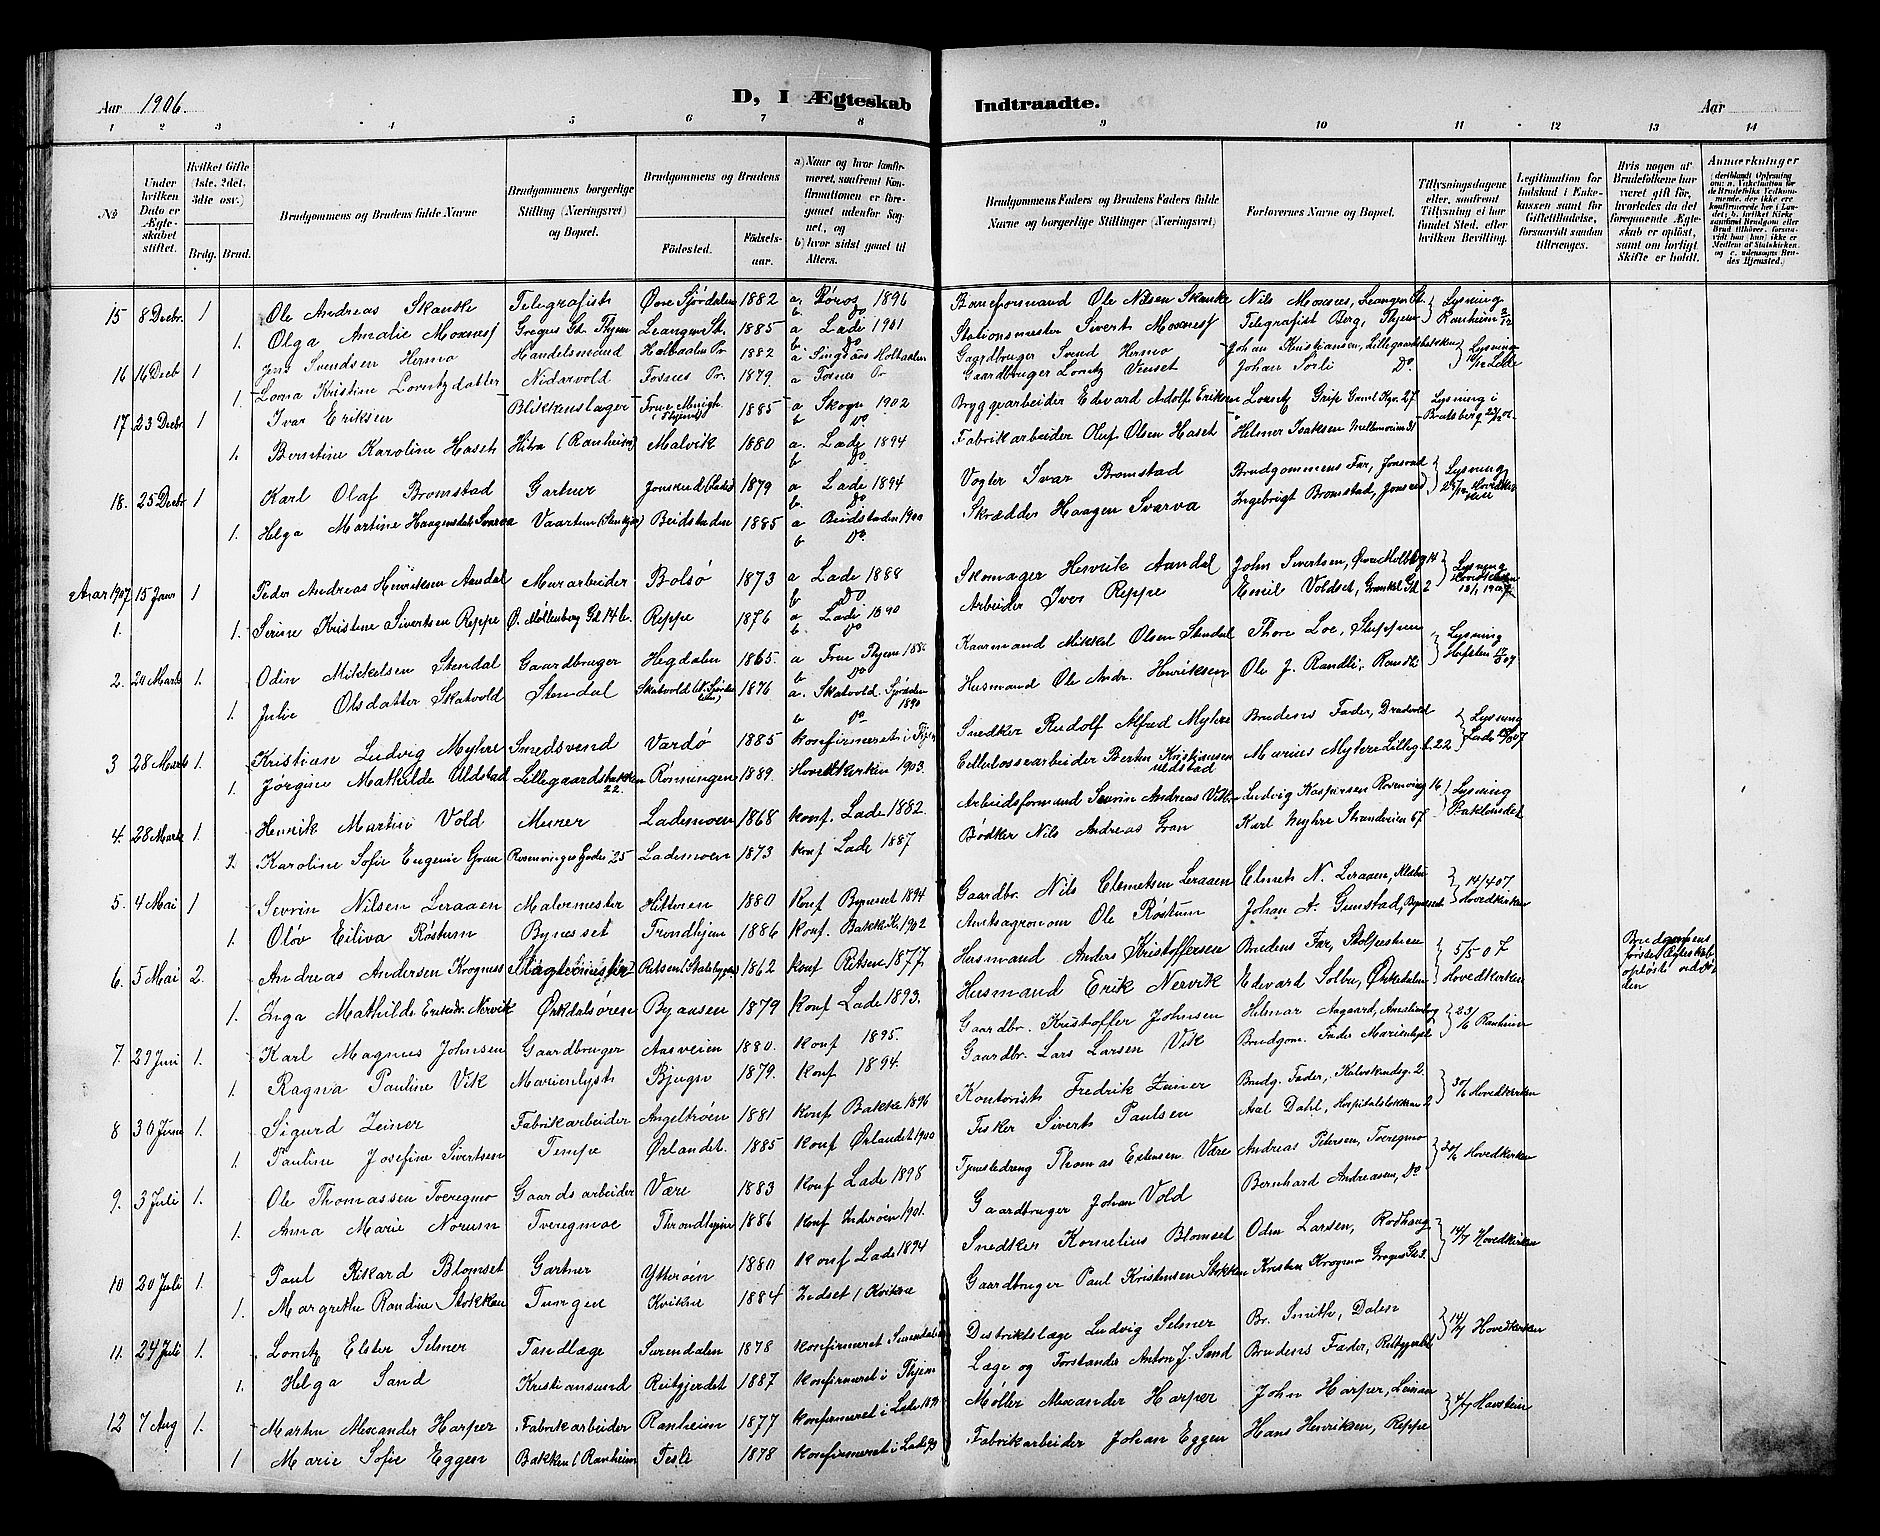 Aar 1906.
D, I Ægteskab Indtraadte.
Aar
1 2 3 4 5 6 7 8 9 10 11 12 13 14
№
Under hvilken Dato er Ægteskabet stiftet.
Hvilket Gifte (1ste, 2det, 3die osv.)
Brdg. Brud.
Brudgommens og Brudens fulde Navne
Brudgommens borgerlige Stilling (Næringsvei) og Bopæl.
Brudgommens og Brudens
Fødested. Fødsels-aar.
a) Naar og hvor konfirmeret, saafremt Konfirmationen er foregaaet udenfor Sognet, og
b) hvor sidst gaaet til Alters.
Brudgommens Faders og Brudens Faders fulde Navne og borgerlige Stillinger (Næringsvei)
Forlovernes Navne og Bopæl.
Tillysningsdagene eller, saafremt Tillysning ei har fundet Sted, efter hvilken Bevilling.
Legitimation for Indskud i Enkekassen samt for Giftetilladelse, forsaavidt saadan tiltrænges.
Hvis nogen af Brudefolkene har været gift før, hvorledes da det foregaaende Ægteskab er opløst, samt om lovligt Skifte er holdt.
Anmærkninger
15 8 Decbr. 1 Ole Andreas Skanke Telegrafist Øvre Stjørdalen 1882 a. Røros 1896 b. Do Baneformand Ole Nilsen Skanke Nils Moxnes, Leangen St. Lysning
1. Olga Amalie Moxness Gregus Gd. Thjem Leangen St. 1885 a Lade 1901 b Do Stationsmester Sivert Moxness Telegrafist Berg, Thjem Ranheim 2/12
16 16 Decb 1 Jens Svendsen Hermo Handelsmand Holtaalen Pr 1882 a Singsaas Holtaalen Gaardbruger Svend Hermo Johan Kristiansen, Lillegaardsbakken Lysning
1. Lorna Kristine Lorntzdatter Nidarvold Fosnes Pr. 1879. a Fosnes Pr Gaardbruger Lorntz Vinset Johan Sorli Do. 16/12 Lade
17. 23 Decbr 1 Ivar Eriksen Blikkenslager Frue Menigh. (Thjem) 1885 a Skogn 1902 b Do Bryggearbeider Edvard Adolf Eriksen Lorentz Grip 27 Lysning i
1. Berntine Karoline Haset Hitra (Ranheim) Malvik 1880 a. Lade 1894 b Do Fabrikarbeider Oluf Olsen Haset Helmer Isaksen Mellemveien 31 Bratsberg
18. 25 Decbr 1 Karl Olaf Bromstad Gartner 1879 a Lade 1894 b. Do Vogter Ivar Bromstad Brudgommens Far, Jonsvad Lysning
1. Helga Martine Haagensdat. Svarva Vaartun (Stenkjær) Beidstaden 1885 a Beidstaden 1900 b Do. Skrædder Haagen Svarva Ingebrigt Bromstad, Jonsvad
Aar 1907 15 Janr 1 Peder Andreas Henriksen Aandal Murarbeider Bolsø 1873 a Lade 1888 b Do Skomager Henrik Aandal John Sivertsen, Øvre Mollbg 14 Lysning
1. 1. Serine Kristine Sivertsen Reppe Ø. Møllenberg Gd 14 b. Reppe 1876 a Lade 1890 b. Do Arbeider Iver Reppe Emil Voldset, 2 1907
2. 20 Marts 1. Odin Mikkelsen Stendal Gaardbruger Hegdalen 1865. a Frue Thjem b Do Kaarmand Mikkel Olsen Stendal Thore Loe, Lysning
1. Julie Olsdatter Skatvold Stendal Skatvold 1876 a. Skatvold Stjørdalen 1890 b Do Husmand Ole Andr. Henriksen Ole J. Randli, Randli
3 28 Marts 1. Kristian Ludvig Myhre Smedsvend Vardø 1885 konfirmeret i Thjem Snedker Rudolf Alfred Myhre Brudens Fader, Lysning
1. Jørgine Mathilde Uldstad Lillegaardsbakken 22. Rønningen 1889. Hovedkirken 1903. Cellulosearbeider Berten Kristiansen Uldstad Marius Myhre Lilleg.b. 22 Lade
4. 28 Marts 1. Henrik Martin Vold Murer Lademoen 1868 konf. Lade 1882. Arbeidsformand Sevrin Andreas Ludvig Kaspersen Rosenvinge 16 Lysning
1. Karoline Sofie Eugenie Gran Rosenvinges Gade 25 Lademoen 1873 konf Lade 1887 Bødker Nils Andreas Gran Karl Myhre Strandveien 67 Baklandet
5. 4 Mai 1 Sevrin Nilsen Leraaen Malermester Hitteren 1880 Konf Bynesset 1894 Gaardbr. Nils Clemetsen Leraaen Clmets N. Leraaen, 14/4 07
1. Oløv Eiliva Røstum Bynesset Trondhjem 1886 konf. Bakke K. 1902 Amtsagronom Ole Røstum Johan A. Gunstad, Bynesset Hovedkirken
6. 5 Mai 2. Andreas Andersen Krognes Ritsen 1862 konf Ritsen 1877. Husmand Anders Kristoffersen Brudens Far, 5/5 07 Brudgommens første Ægteskab opløst ved Døden
1. Inga Mathilde Eriksdr. Nervik Orkdalsøren Byaasen 1879 konf Lade 1893. Husmand Erik Nervik Edvard Solbu, Orkedalen Hovedkirken
7. 29 Juni 1. Karl Magnus Johnsen Gaardbruger Aasveien 1880. konf 1895. Gaardbr. Kristoffer Johnsen Hilmar Aagaard, 23/6 Ranheim
1. Ragna Pauline Vik Marienlyst Bjugn 1879. konf 1894. Gaardbr. Lars Larsen Vik Brudgom. Fader Marienlyst
8 30 Juni 1. Sigurd Zeiner Fabrikarbeider Angeltrøen 1881 konf Bakke 1896 Kontorist Fredrik Zeiner Brudg. Fader, Kalvskindsg. 2. Hovedkirken
1. Pauline Josefine Sivertsen Tempe Ørlandet. 1885 konf Ørlandet 1900 Fisker Sivert Paulsen Axel Dahl, Hospitalsløkken 2
9. 3 Juli 1. Ole Thomassen Tveregmo Gaardsarbeider Være 1883 konf Lade 1898 Tjenstedreng Thomas Estensen Være Andreas Petersen, Tveregmo 30/6 Hovedkirken
1. Anna Marie Norum Tveregmoe Throndhjem 1886 konf Inderøen 1901. Gaardbruger Johan Vold Bernhard Andreasen, Do
10 20 Juli 1. Paul Rikard Blomset Gartner Ytterøen 1880 konf Lade 1894 Snedker Kornelius Blomset Oden Larsen, Rodhaug 14/7 Hovedkirken
1. Margrethe Randine Stokkan Tungen Kvikne 1884 Indset / Kvikne Gaardbruger Paul Kristensen Stokken Kristen Krogmo Gregus Gt 3.
11. 24 Juli 1. Lorntz Elster Selmer Tandlæge Surendalen 1878 konfirmeret Surendalen Distriktslæge Ludvig Selmer Br. Smith, Dalen 14/7 Hovedkirken
1. Helga Sand Kristiansund Reitgjerdet 1887 konfirmeret i Thjem Læge og Forstander Anton J. Sand Brudens Fader, Reitgjerdet
12 7 Aug 1. Martin Alexander Harper Fabrikarbeider Ranheim 1877 konfirmeret i Lade Møller Alexander Harper John Harper, Leinan Havstein
1 Marie Sofie Eggen Bakken (Ranheim Tesli 1878 konfirmeret i Lade 93 Fabrikarbeider Johan Eggen Hans Henriksen, Reppe